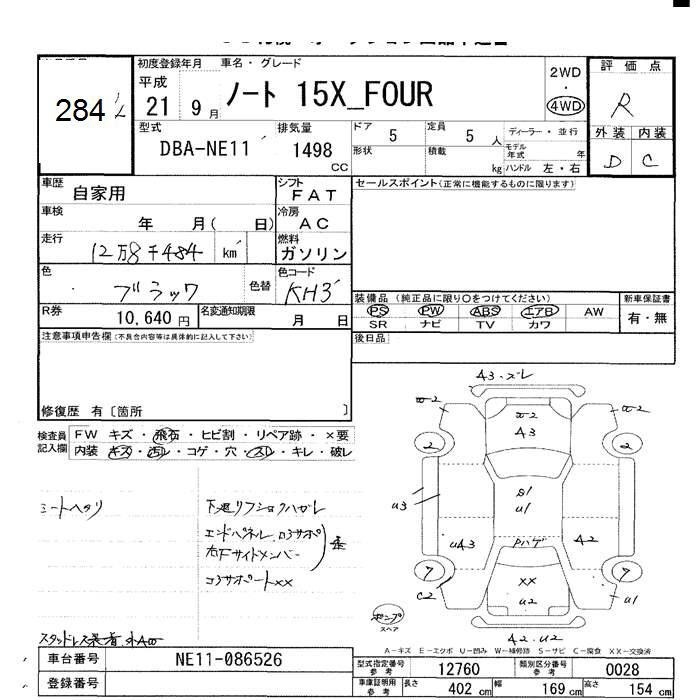 初度登録年月 車名・グレード
評価点
284
平成
21 9月
ノート 15X_FOUR
2WD
・
4WD
R
型式
DBA-NE11
排気量
1498
CC
ドア 5
定員 5 人
ディーラー・並行
形状
積載 kg
モデル年式 年
ハンドル 左・右
外装 内装
D C
車歴
自家用
シフト
FAT
セールスポイント(正常に機能するものに限ります)
車検
年 月( 日)
冷房
AC
走行
12万8千484 km
燃料
ガソリン
色
ブラック
色替
色コード
KH3
装備品 (純正品に限り○をつけてください)
新車保証書
PS PW ABS エアB AW
SR ナビ TV カワ
有・無
R券
10,640 円
名変通知期限
月 日
後日品
注意事項申告欄(不具合内容等は具体的に記入して下さい)
修復歴 有〔箇所 〕
検査員記入欄
FW キズ・飛石・ヒビ割・リペア跡・×要
内装 キズ・汚レ・コゲ・穴・スレ・キレ・破レ
シートヘタリ
下廻リフショクハガレ
エンドパネル
右下サイドメンバー
コアサポートXX
43・ズレ
W-2
W-2
W-2
43
2
2
U3
S1
U1
U43
Pハゲ
42
7
7
XX
U2
C2
U1
42・U2
スペア
A-キズ E-エクボ U-凹み W-補修跡 S-サビ C-腐食 XX-交換済
車台番号
NE11-086526
型式指定番号
参考
12760
類別区分番号
参考
0028
登録番号
車庫証明用
参考
長さ 402 cm
幅 169 cm
高さ 154 cm